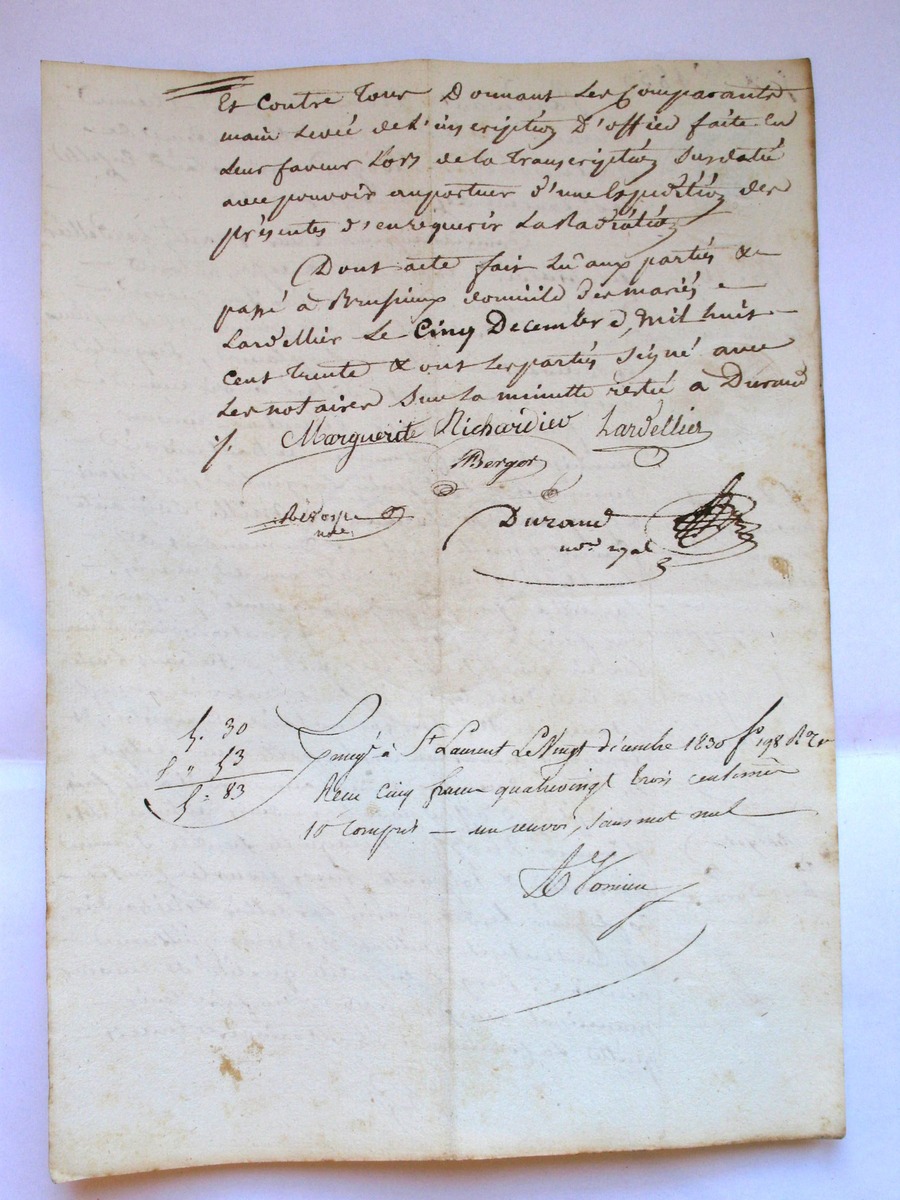 Et contre tous Donnant les Comparants
main levée de l'inscription D'office faite en
leur faveur lors de la transcription susdatée
avec pouvoir au porteur d'une Expédition des
présentes d'en requérir La Radiation
Dont acte fait lu aux partiés &
passé à Brussieux domicile des mariés
Lardellier Le Cinq Decembre, mil huit
cent trente & ont les partiés signé avec
les notaires sur la minutte restée à Durand
Marguerite Richardier Lardellier
Berger
nre
Durand
nore ryal
5. 30
" 53
5. 83
à St Laurent Le Vingt décembre 1830 fo 198 Ro
Reçu cinq francs quatrevingt trois centimes
10e compris — un renvoi, sans mot nul